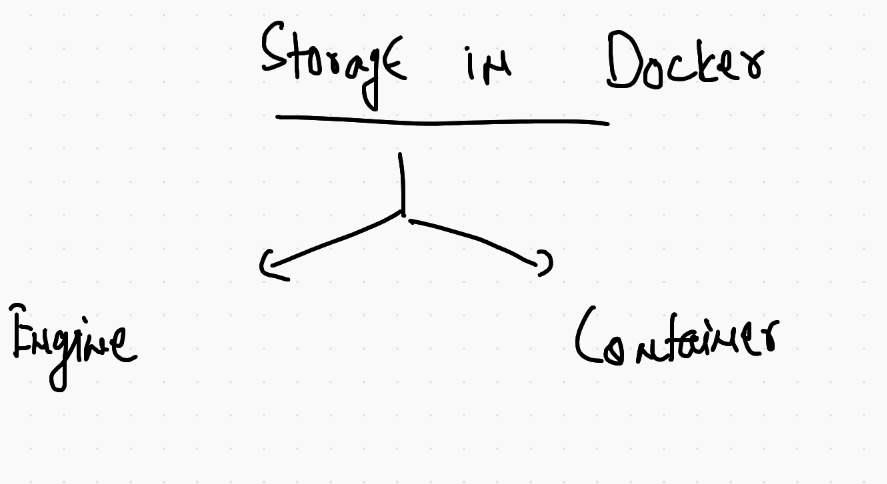 Storage in Docker
Engine
Container